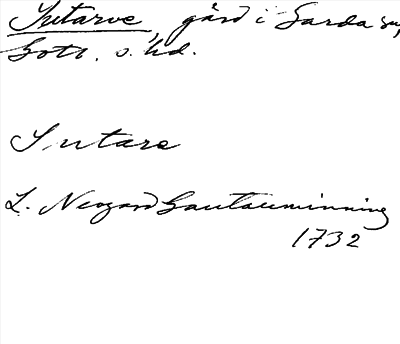 Sutarve, gård i Garda sn,
Gotl. s. hd.
Sutare
L. Neogard Gautauminning
1732